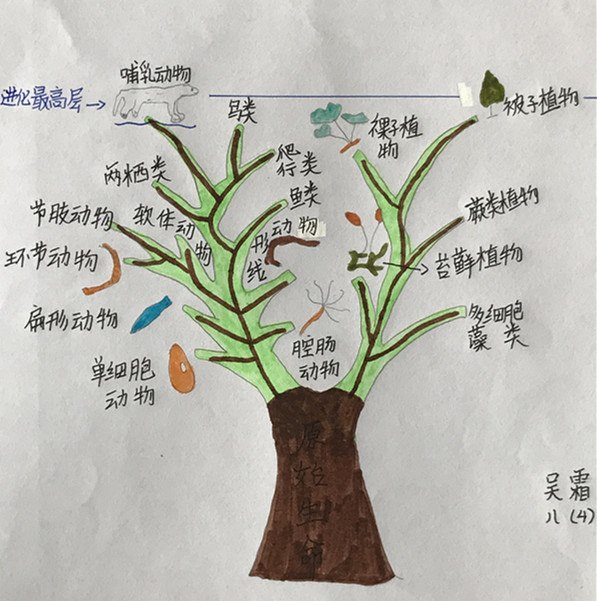 哺乳动物
进化最高层→
鸟类
裸子植
物
被子植物
两栖类
爬
行类
鱼类
节肢动物
软体动
物
蕨类植物
环节动物
线
形动物
→苔藓植物
扁形动物
多细胞
藻类
腔肠
动物
单细胞
动物
原
始
生
命
吴霜
八(4)